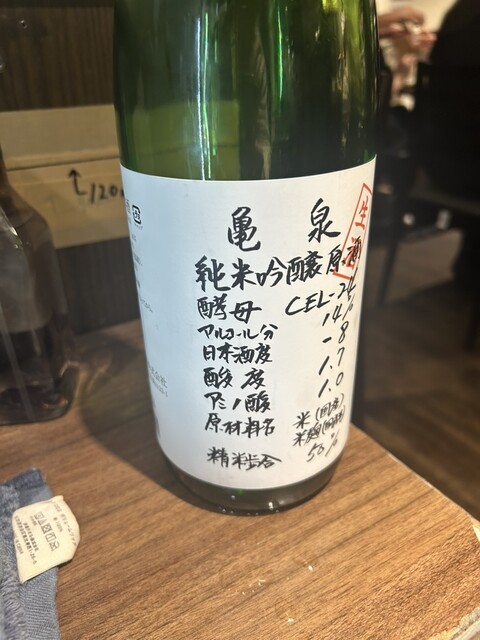 亀泉
生酒
純米吟醸原酒
酵母 CEL-24
アルコール分 14%
日本酒度 -8
酸度 1.7
アミノ酸 1.0
原材料名 米(国産)
米麹(国産米)
精米歩合 50%
120